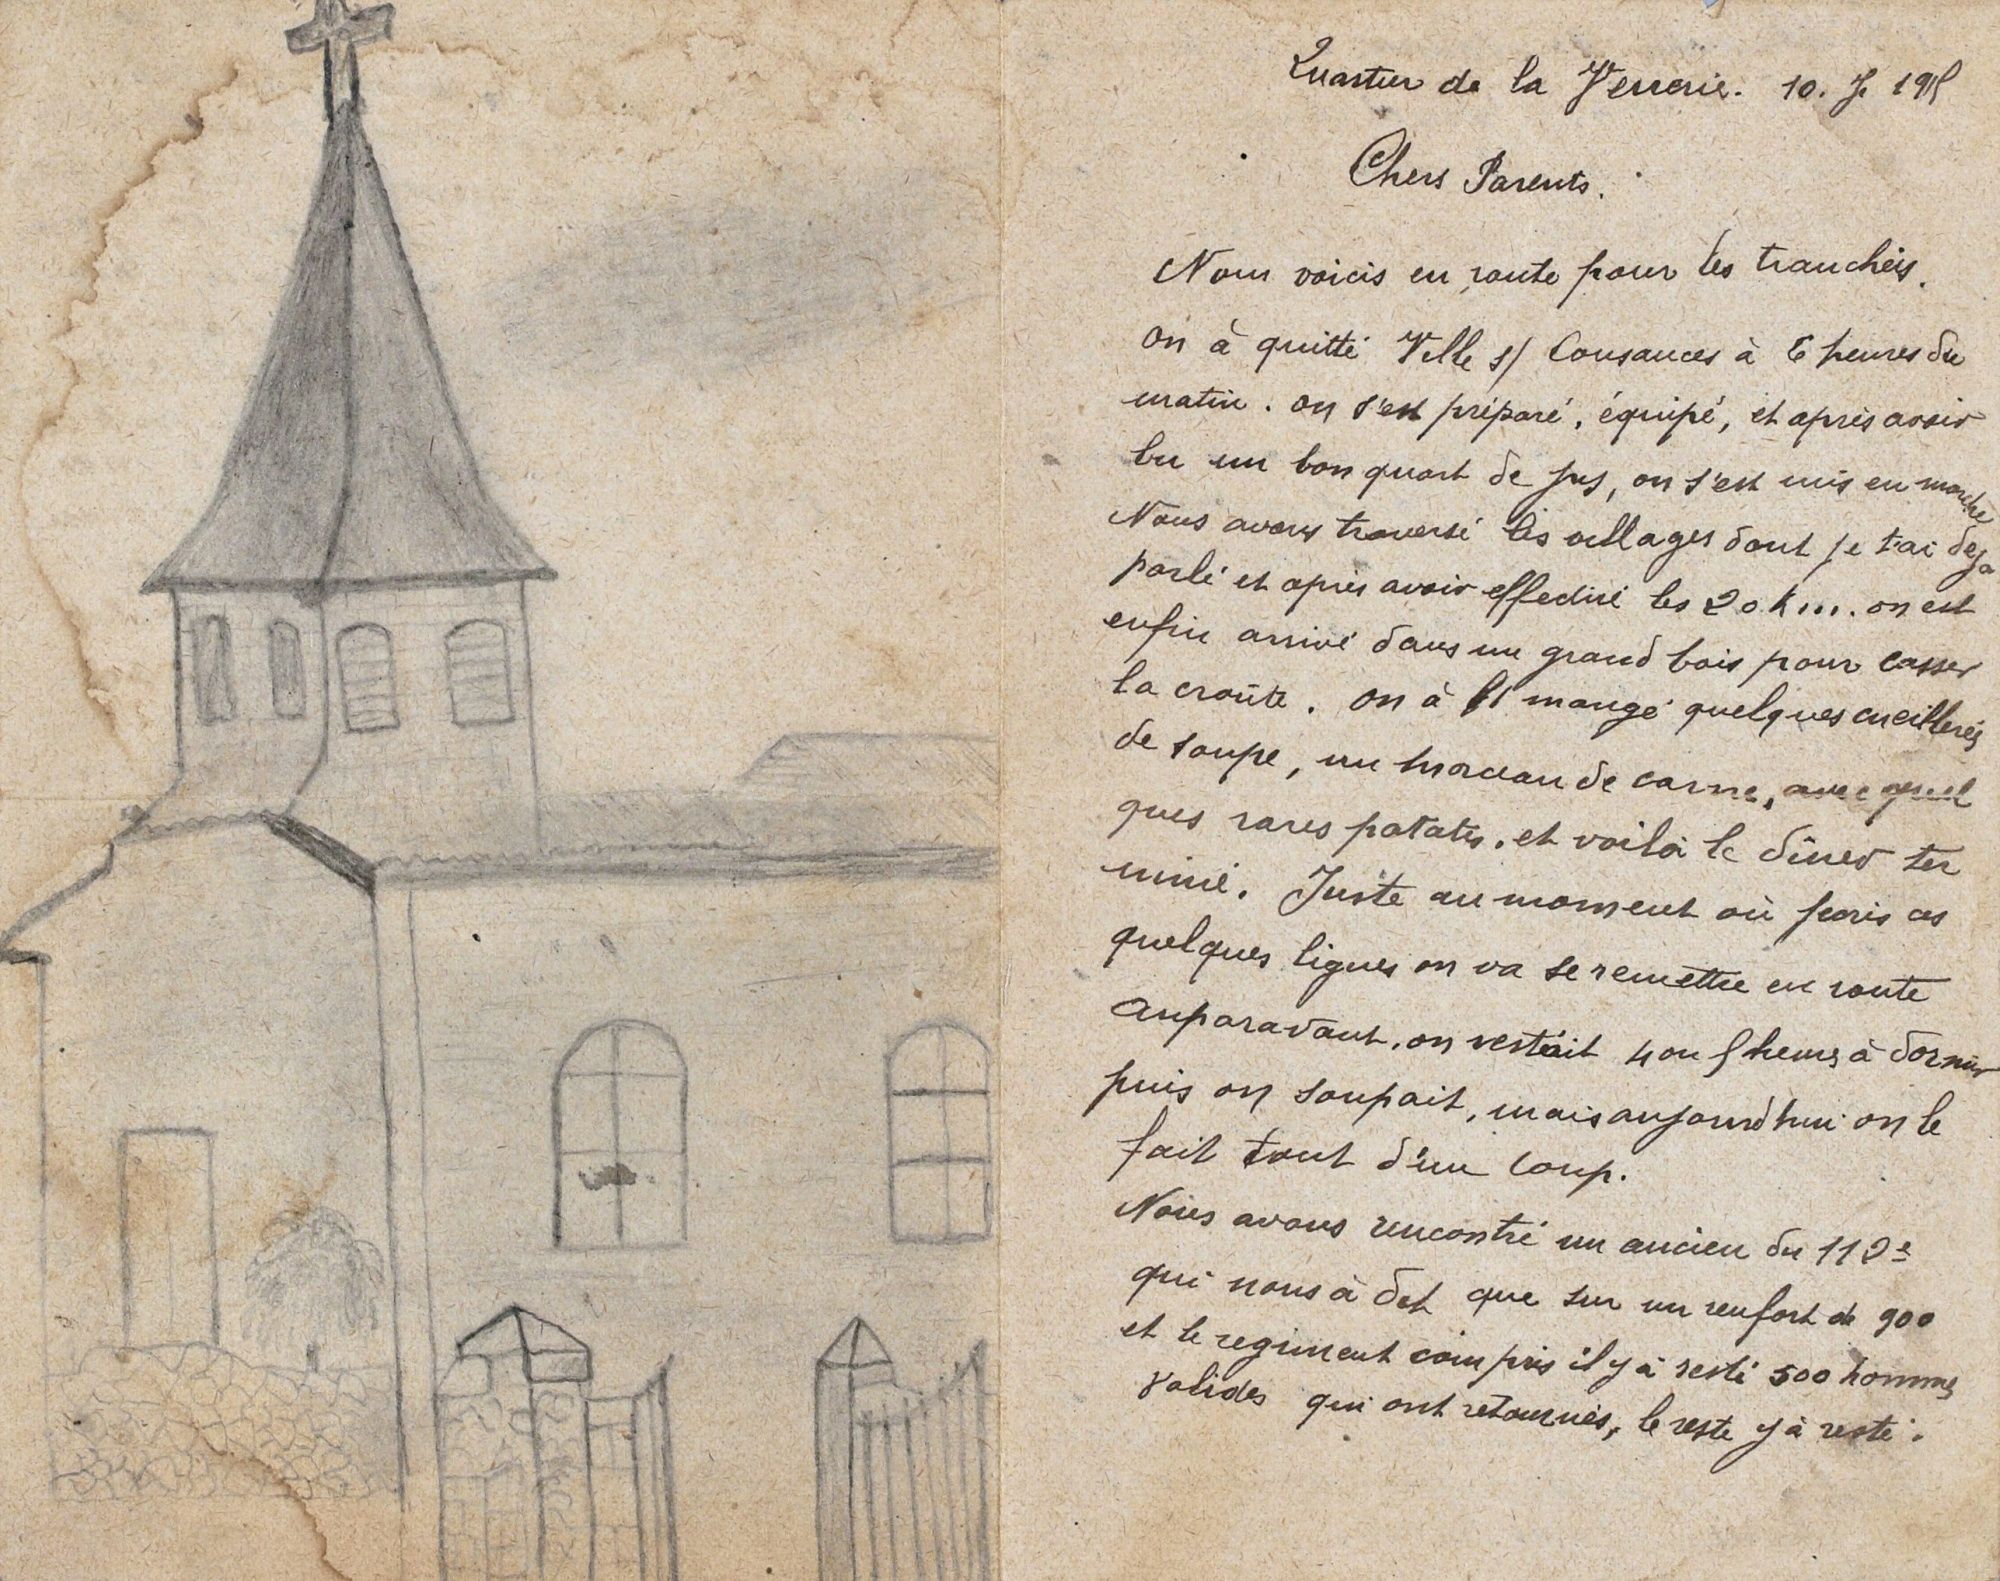 Quartier de la Verrerie. 10. J. 1915
Chers Parents.
Nous voicis en route pour les tranchées.
On à quitté Ville s/ Cousances à 6 heures du
matin. on s'est préparé, équipé, et après avoir
bu un bon quart de jus, on s'est mis en marche
Nous avons traversé les villages dont je t'ai deja
parlé et après avoir effectué les 20 km... on est
enfin arrivé dans un grand bois pour casser
la croûte. On à mangé quelques cueillerés
de soupe, un morceau de carne, avec quel
ques rares patates. et voilà le dîner ter
miné. Juste au moment où j'ecris ces
quelques lignes on va se remettre en route
Auparavant, on restait 4 ou 5 heures à dormir
puis on soupait, mais aujourd'hui on le
fait tout d'un coup.
Nous avons rencontré un ancien du 112e
qui nous à dit que sur un renfort de 900
et le regiment compris il y à resté 500 hommes
valides qui ont retournés, le reste y à resté.